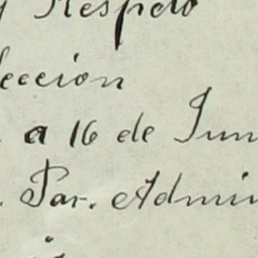 y Respeto
leccion
a 16 de Jun
Par. Admin